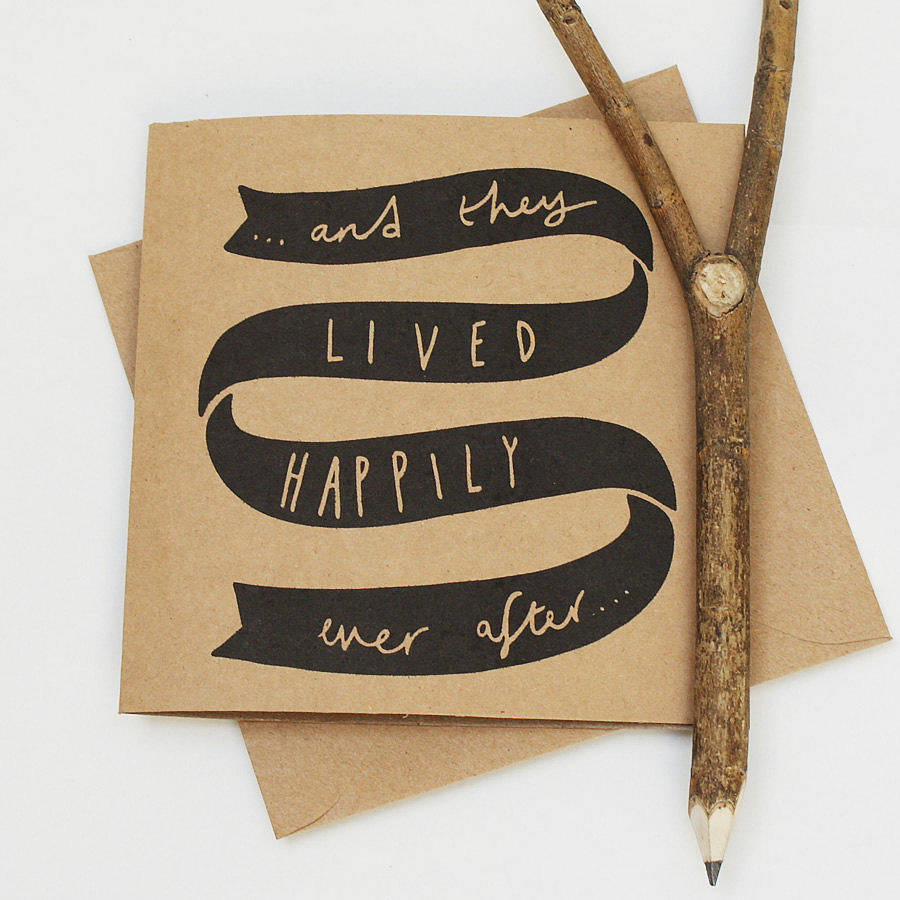 ...and they
LIVED
HAPPILY
ever after....